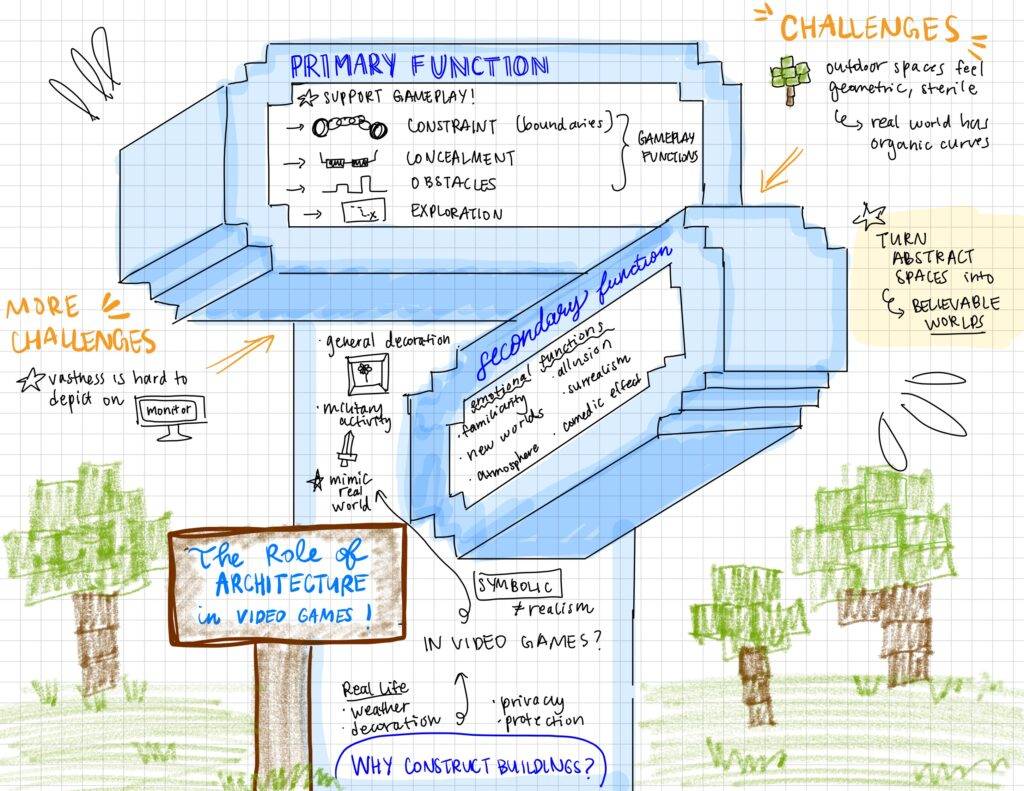 CHALLENGES
outdoor spaces feel
geometric, sterile
real world has
organic curves
PRIMARY FUNCTION
SUPPORT GAMEPLAY!
CONSTRAINT (boundaries)
CONCEALMENT
OBSTACLES
EXPLORATION
GAMEPLAY
FUNCTIONS
TURN
ABSTRACT
SPACES into
BELIEVABLE
WORLDS
secondary function
emotional functions
· familiarity
· new worlds
· atmosphere
· allusion
· surrealism
· comedic effect
MORE
CHALLENGES
vastness is hard to
depict on
monitor
· general decoration
· military
activity
mimic
real
world
The Role of
ARCHITECTURE
in VIDEO GAMES!
SYMBOLIC
≠ realism
IN VIDEO GAMES?
Real Life
· weather
· decoration
· privacy
· protection
WHY CONSTRUCT BUILDINGS?